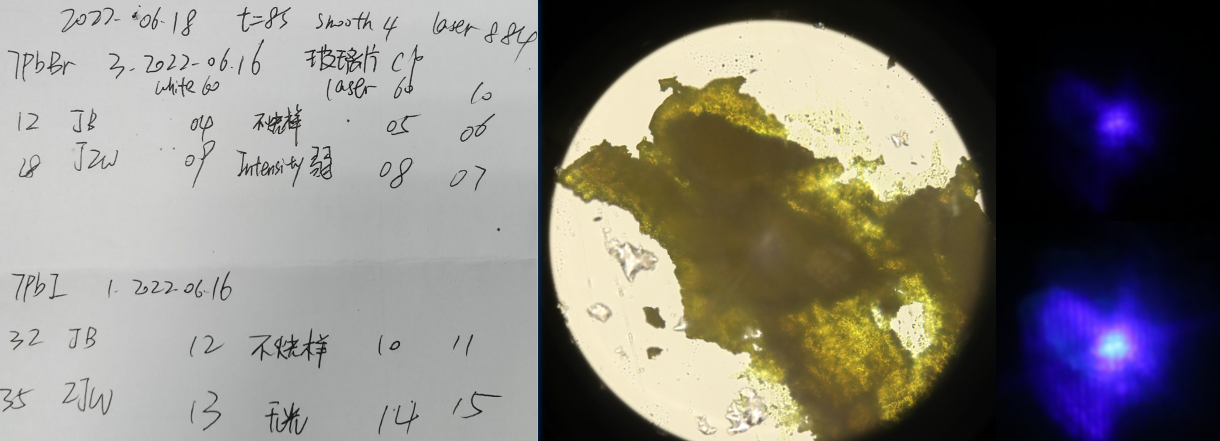 2022-06.18 t=85 smooth 4 laser 884
7PbBr 3-2022-06.16 玻璃片 C/b
white 60 laser 60 10
12 JB 04 不烧样 05 06
28 JZW 09 Intensity 弱 08 07
7PbI 1-2022-06.16
32 JB 12 不烧样 10 11
35 ZJW 13 无光 14 15